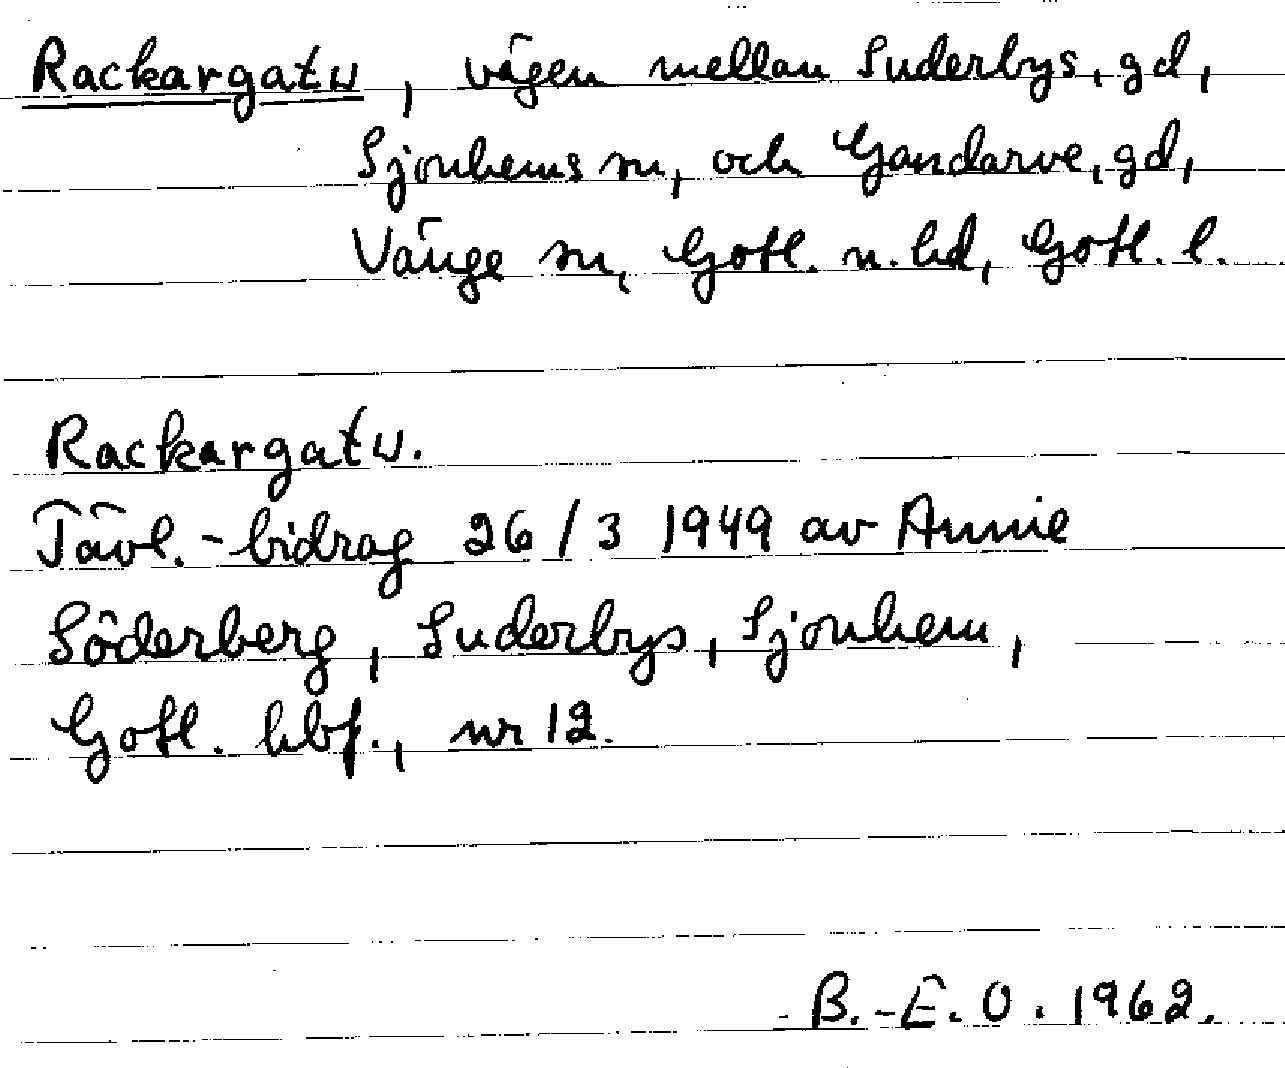 Rackargatu, vägen mellan Suderbys, gd,
Sjonhems sn, och Gandarve, gd,
Vänge sn, Gotl. n. hd, Gotl. l.
Rackargatu.
Tävl.-bidrag 26/3 1949 av Annie
Söderberg, Suderbys, Sjonhem,
Gotl. hbf., nr 12.
B.-E.O. 1962.